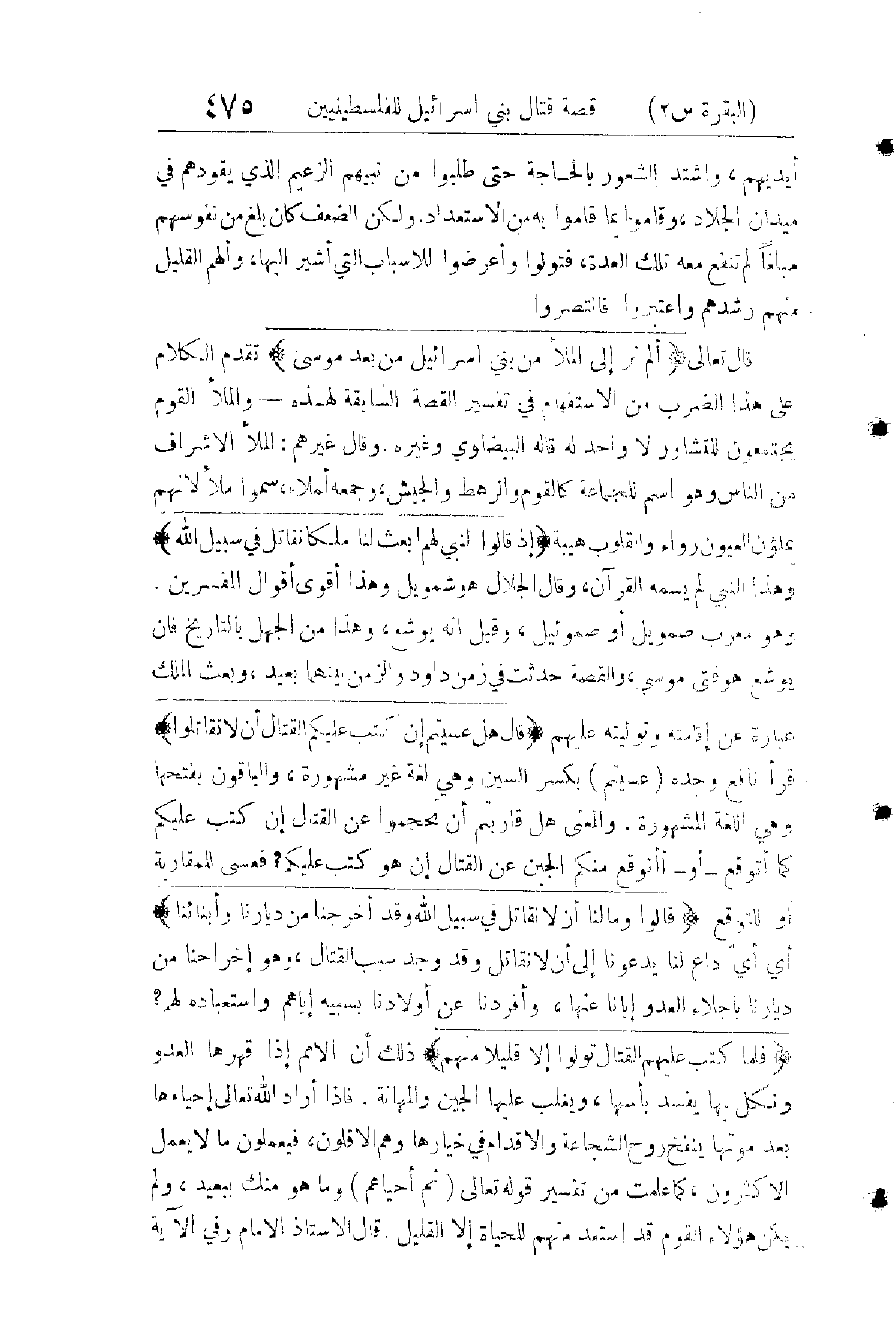 (البقرة س٢) قصة قتال بني اسرائيل للفلسطينيين ٤٧٥
أيديهم ، واشتد الشعور بالحاجة حتى طلبوا من نبيهم الزعيم الذي يقودهم في
ميدان الجلاد ، وقاموا بما قاموا به من الاستعداد. ولكن الضعف كان بلغ من نفوسهم
مبلغاً لم تنفع معه تلك العدة، فتولوا وأعرضوا للاسباب التي أشير اليها، وألهم القليل
منهم رشدهم واعتبروا فانتصروا
قال تعالى ﴿ ألم تر إلى الملأ من بني اسرائيل من بعد موسى ﴾ تقدم الكلام
على هذا الضرب من الاستفهام في تفسير القصة السابقة لهذه — والملأ القوم
يجتمعون للتشاور لا واحد له قاله البيضاوي وغيره . وقال غيرهم : الملأ الاشراف
من الناس وهو اسم للجماعة كالقوم والرهط والجيش، وجمعه أملاء، سموا ملأ لانهم
يملؤن العيون رواء والقلوب هيبة ﴿إذ قالوا لنبي لهم ابعث لنا ملكا نقاتل في سبيل الله ﴾
وهذا النبي لم يسمه القرآن، وقال الجلال هو شمويل وهذا أقوى أقوال المفسرين .
وهو معرب صمويل أو صموئيل ، وقيل انه يوشع ، وهذا من الجهل بالتاريخ فان
يوشع هو فتى موسى ، والقصة حدثت في زمن داود والزمن بينهما بعيد ، وبعث الملك
عبارة عن إقامته وتوليته عليهم ﴿قال هل عسيتم إن كتب عليكم القتال أن لا تقاتلوا﴾
قرأ نافع وحده ( عسيتم ) بكسر السين وهي لغة غير مشهورة ، والباقون بفتحها
وهي اللغة المشهورة . والمعنى هل قاربتم أن تحجموا عن القتال إن كتب عليكم
كما أتوقع –أو– أأتوقع منكم الجبن عن القتال إن هو كتب عليكم؟ فعسى للمقاربة
أو للتوقع ﴿ قالوا ومالنا أن لا نقاتل في سبيل الله وقد أخرجنا من ديارنا وأبنائنا ﴾
أي أيّ داع لنا يدعونا إلى أن لا نقاتل وقد وجد سبب القتال ، وهو إخراجنا من
ديارنا باجلاء العدو إيانا عنها ، وأفردنا عن أولادنا بسبيه إياهم واستعباده لهم؟
﴿ فلما كتب عليهم القتال تولوا إلا قليلا منهم﴾ ذلك أن الامم إذا قهرها العدو
ونكل بها يفسد بأسها ، ويغلب عليها الجبن والمهانة . فاذا أراد الله تعالى إحياءها
بعد موتها ينفخ روح الشجاعة والاقدام في خيارها وهم الاقلون، فيعملون ما لا يعمل
الاكثرون ، كما علمت من تفسير قوله تعالى ( ثم أحياهم ) وما هو منك ببعيد ، ولم
يكن هؤلاء القوم قد استعد منهم للحياة إلا القليل . قال الاستاذ الامام وفي الآية